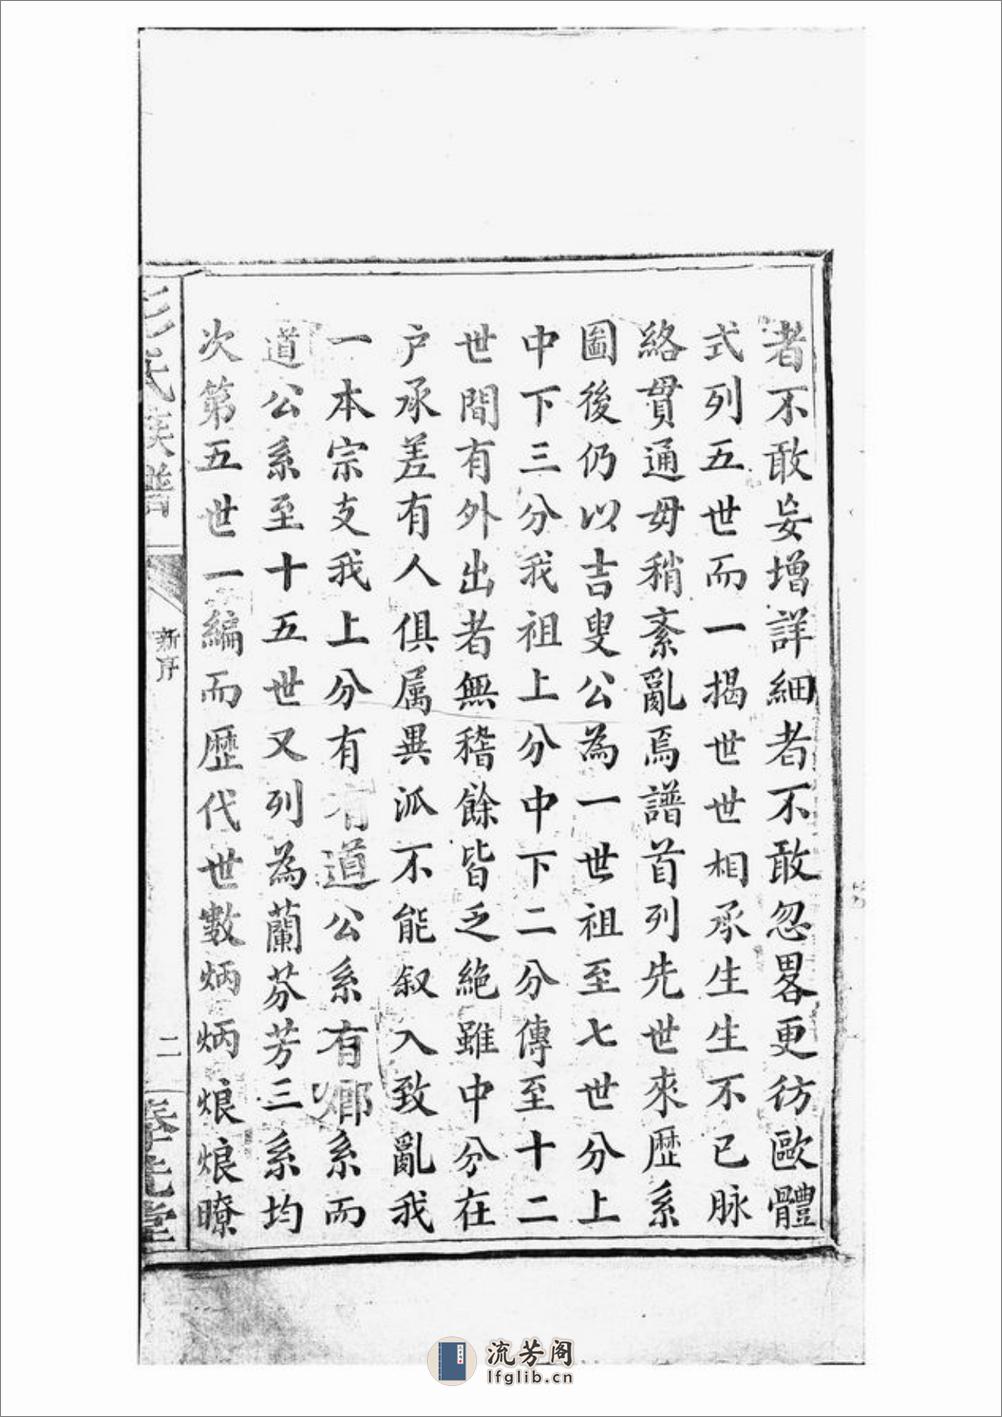 者不敢妄增詳細者不敢忽畧更彷歐體
式列五世而一揭世世相承生生不已脉
絡貫通毋稍紊亂焉譜首列先世來歷系
圖後仍以吉叟公為一世祖至七世分上
中下三分我祖上分中下二分傳至十二
世間有外出者無稽餘皆乏絶雖中分在
户承差有人俱属異派不能叙入致亂我
一本宗支我上分有有道公系有鄉系而
道公系至十五世又列為蘭芬芳三系均
次第五世一編而歷代世數炳炳烺烺瞭
氏族譜
新序
二
先堂
流芳阁
lfglib.cn